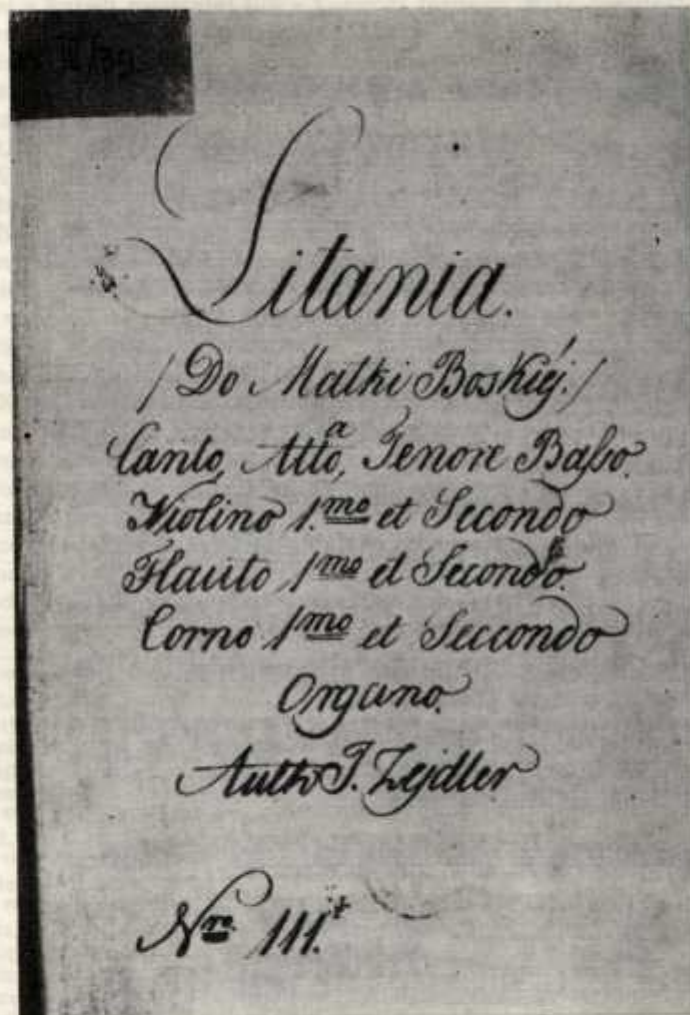 III/39
Litania.
/ Do Matki Boskiéj. /
Canto, Alto, Tenore Baſso.
Violino 1.mo et Secondo
Flauto 1mo et Secondo.
Corno 1mo et Seccondo
Organo.
Auth J. Zejdler
Nro. 111.